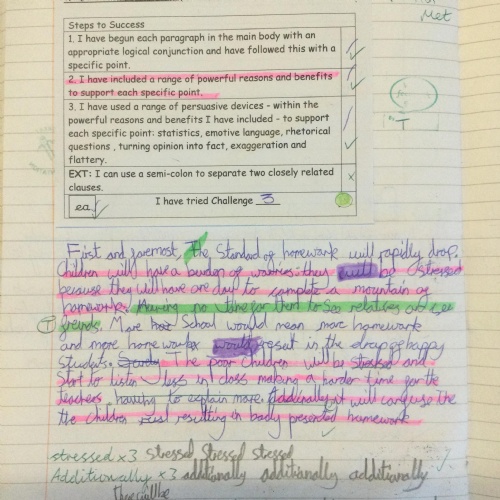 Met
Steps to Success
1. I have begun each paragraph in the main body with an
appropriate logical conjunction and have followed this with a
specific point.
2. I have included a range of powerful reasons and benefits
to support each specific point.
3. I have used a range of persuasive devices - within the
powerful reasons and benefits I have included - to support
each specific point: statistics, emotive language, rhetorical
questions , turning opinion into fact, exaggeration and
flattery.
EXT: I can use a semi-colon to separate two closely related
clauses.
ea I have tried Challenge 3
T
First and foremost, The Standard of homework will rapidly drop.
Children will have a burden of worries: they will be stressed
because they will have one day to complete a mountain of
homework. Having no time for them to see relatives or see
T friends. More School would mean more homework
and more homework would result in the drop of happy
students. The poor Children will be stressed and
Start to listen less in class making a harder time for the
teachers having to explain more. Addinally it will cause the
the Children resulting in body presented homework
stressed x3 stressed stressed stressed
Additionally x3 additionally additionally additionally